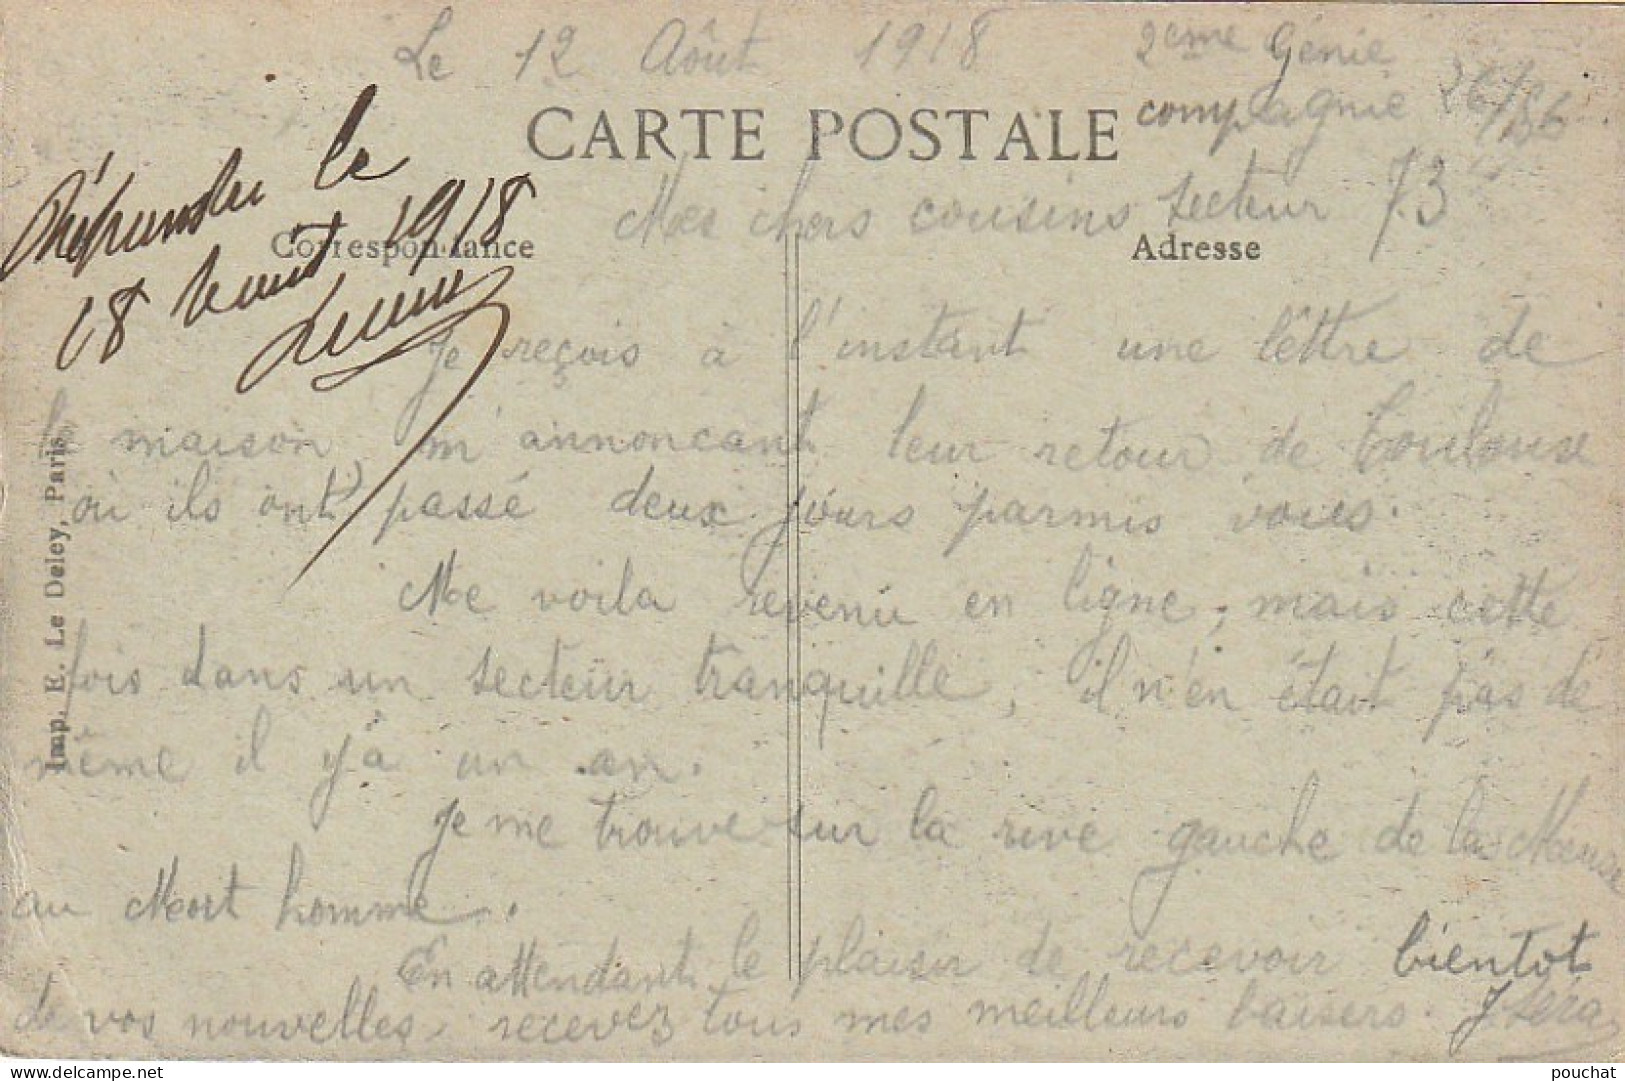 Le 12 Aôut 1918 2eme Génie
compagnie 26/56
CARTE POSTALE
secteur 73
Mes chers cousins
Correspondance
Adresse
Répondu le
18 1918
Je reçois à l'instant une lêttre de
la maison, m'annoncant leur retour de Toulouse
où ils ont passé deux jours parmis vous.
Me voila revenu en ligne, mais cette
fois dans un secteur tranquille, il n'en était pas de
même il y'a un an.
Je me trouve sur la rive gauche de la Meuse
au Mort homme.
En attendant le plaisir de recevoir bientot
de vos nouvelles, recevez tous mes meilleurs baisers.
Imp. E. Le Deley, Paris
pouchat